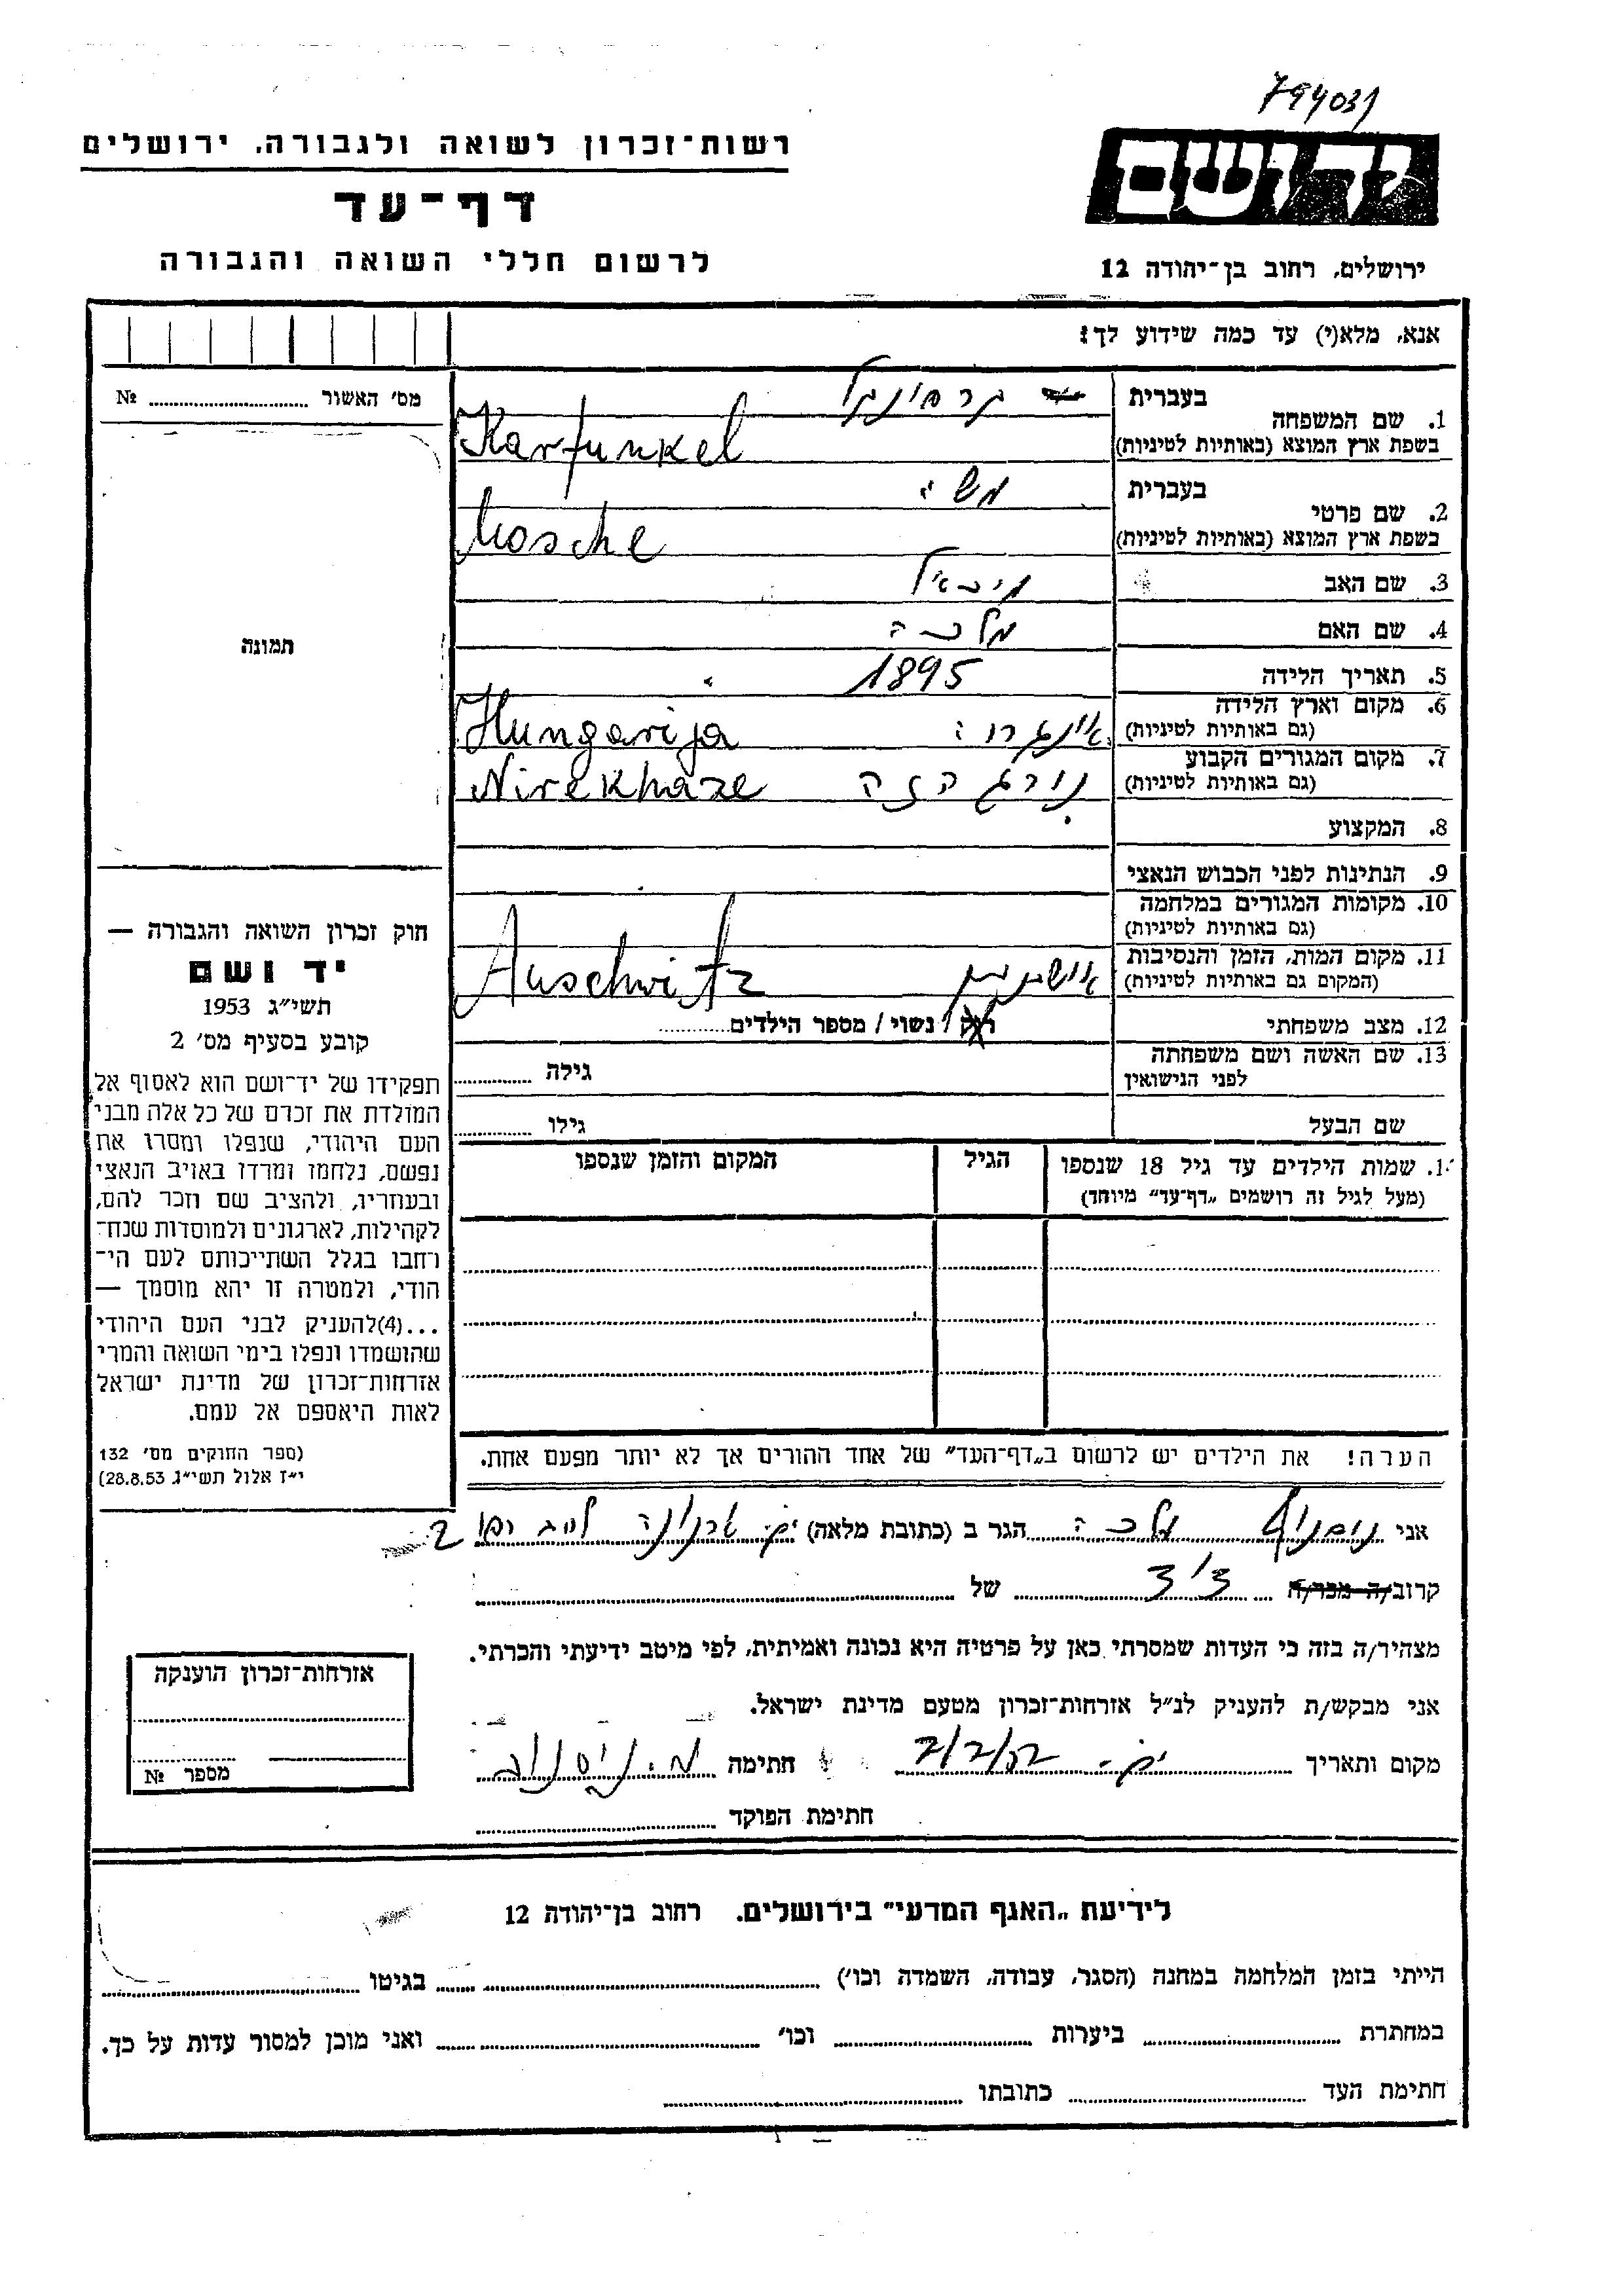 794031
רשות־זכרון לשואה ולגבורה, ירושלים
דף־עד
לרשום חללי השואה והגבורה
יד ושם
ירושלים, רחוב בן־יהודה 12
אנא, מלא(י) עד כמה שידוע לך:
מס׳ האשור № ........
תמונה
1. שם המשפחה
בעברית
בשפת ארץ המוצא (באותיות לטיניות)
Karfunkel
2. שם פרטי
בעברית
משה
בשפת ארץ המוצא (באותיות לטיניות)
Mosche
3. שם האב
מיכאל
4. שם האם
מלכה
5. תאריך הלידה
1895
6. מקום וארץ הלידה
(גם באותיות לטיניות)
Hungarija
7. מקום המגורים הקבוע
(גם באותיות לטיניות)
Nirekhaze
8. המקצוע
9. הנתינות לפני הכבוש הנאצי
10. מקומות המגורים במלחמה
(גם באותיות לטיניות)
11. מקום המות, הזמן והנסיבות
(המקום גם באותיות לטיניות)
אושויץ Auschwitz
12. מצב משפחתי
רוק / נשוי / מספר הילדים ........
13. שם האשה ושם משפחתה
לפני הנישואין
גילה ........
שם הבעל
גילו ........
14. שמות הילדים עד גיל 18 שנספו
(מעל לגיל זה רושמים „דף־עד״ מיוחד)
הגיל
המקום והזמן שנספו
חוק זכרון השואה והגבורה —
יד ושם
תשי״ג 1953
קובע בסעיף מס׳ 2
תפקידו של יד־ושם הוא לאסוף אל
המולדת את זכרם של כל אלה מבני
העם היהודי, שנפלו ומסרו את
נפשם, נלחמו ומרדו באויב הנאצי
ובעוזריו, ולהציב שם וזכר להם,
לקהילות, לארגונים ולמוסדות שנח־
רחבו בגלל השתייכותם לעם הי־
הודי, ולמטרה זו יהא מוסמך —
...(4)להעניק לבני העם היהודי
שהושמדו ונפלו בימי השואה והמרי
אזרחות־זכרון של מדינת ישראל
לאות היאספם אל עמם.
(ספר החוקים מס׳ 132
י״ז אלול תשי״ג 28.8.53)
הערה! את הילדים יש לרשום ב„דף־העד״ של אחד ההורים אך לא יותר מפעם אחת.
אני מלכה הגר ב (כתובת מלאה)
קרוב/ה מכר/ה של
מצהיר/ה בזה כי העדות שמסרתי כאן על פרטיה היא נכונה ואמיתית, לפי מיטב ידיעתי והכרתי.
אני מבקש/ת להעניק לנ״ל אזרחות־זכרון מטעם מדינת ישראל.
מקום ותאריך חתימה
חתימת הפוקד
אזרחות־זכרון הוענקה
מספר №
לידיעת „האגף המדעי״ בירושלים, רחוב בן־יהודה 12
הייתי בזמן המלחמה במחנה (הסגר, עבודה, השמדה וכו׳) ........ בגיטו ........
במחתרת ........ ביערות ........ וכו׳ ........ ואני מוכן למסור עדות על כך.
חתימת העד ........ כתובתו ........